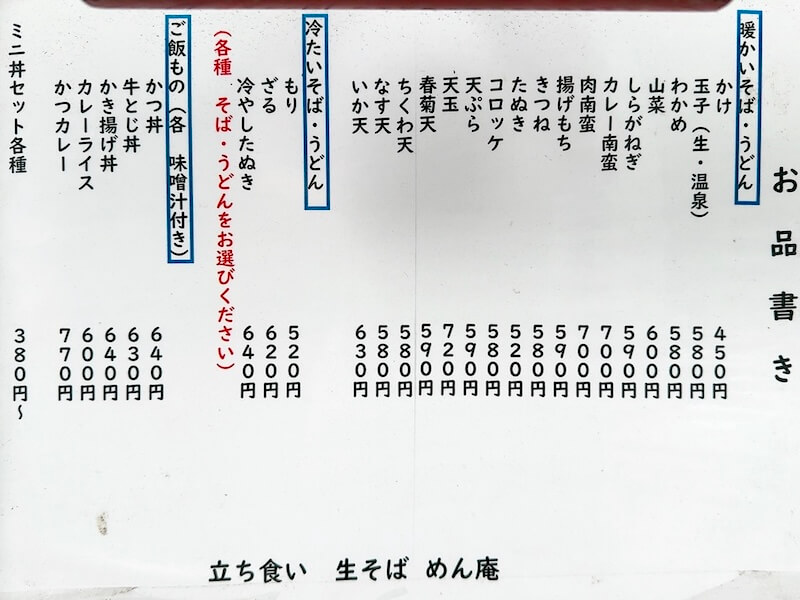 お品書き
暖かいそば・うどん
かけ 450円
玉子（生・温泉） 580円
わかめ 580円
山菜 600円
しらがねぎ 590円
カレー南蛮 700円
肉南蛮 700円
揚げもち 590円
きつね 580円
たぬき 520円
コロッケ 580円
天ぷら 590円
天玉 720円
春菊天 590円
ちくわ天 580円
なす天 580円
いか天 630円
冷たいそば・うどん
もり 520円
ざる 620円
冷やしたぬき 640円
（各種　そば・うどんをお選びください）
ご飯もの（各　味噌汁付き）
かつ丼 640円
牛とじ丼 630円
かき揚げ丼 640円
カレーライス 600円
かつカレー 770円
ミニ丼セット各種 380円～
立ち食い　生そば　めん庵